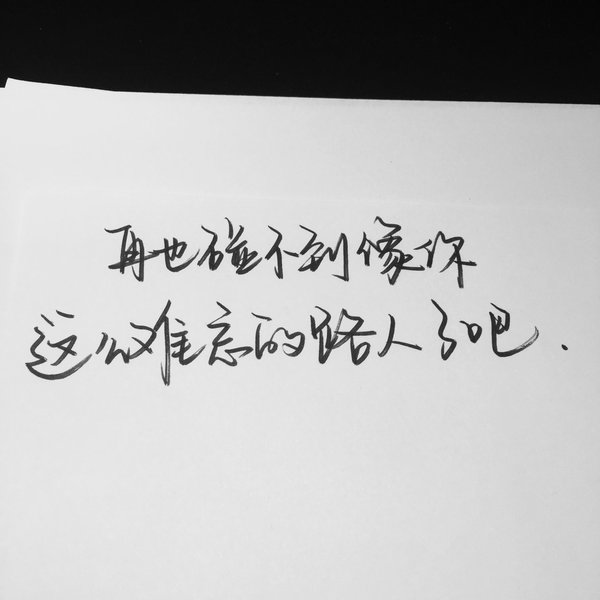 再也碰不到像你
这么难忘的路人了吧.